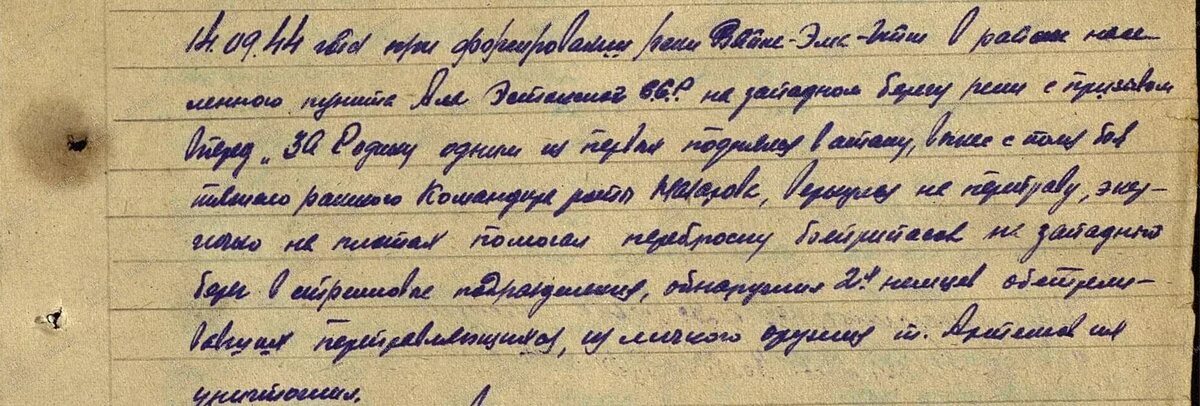 14.09.44 года при форсировании реки Вяйке-Эма-Йыги в районе насе-
ленного пункта Ала Эстонской ССР на западном берегу реки с призывом
Вперед „За Родину одним из первых поднялся в атаку, вынес с поля боя
тяжело раненого Командира роты Макарова, вернулся на переправу, энер-
гично на плотах помогал переброску боеприпасов на западный
берег в стрелковые подразделения, обнаружил 2х немцев обстрели-
вавших переправляющихся, из личного оружия т. Артемов их
уничтожил.